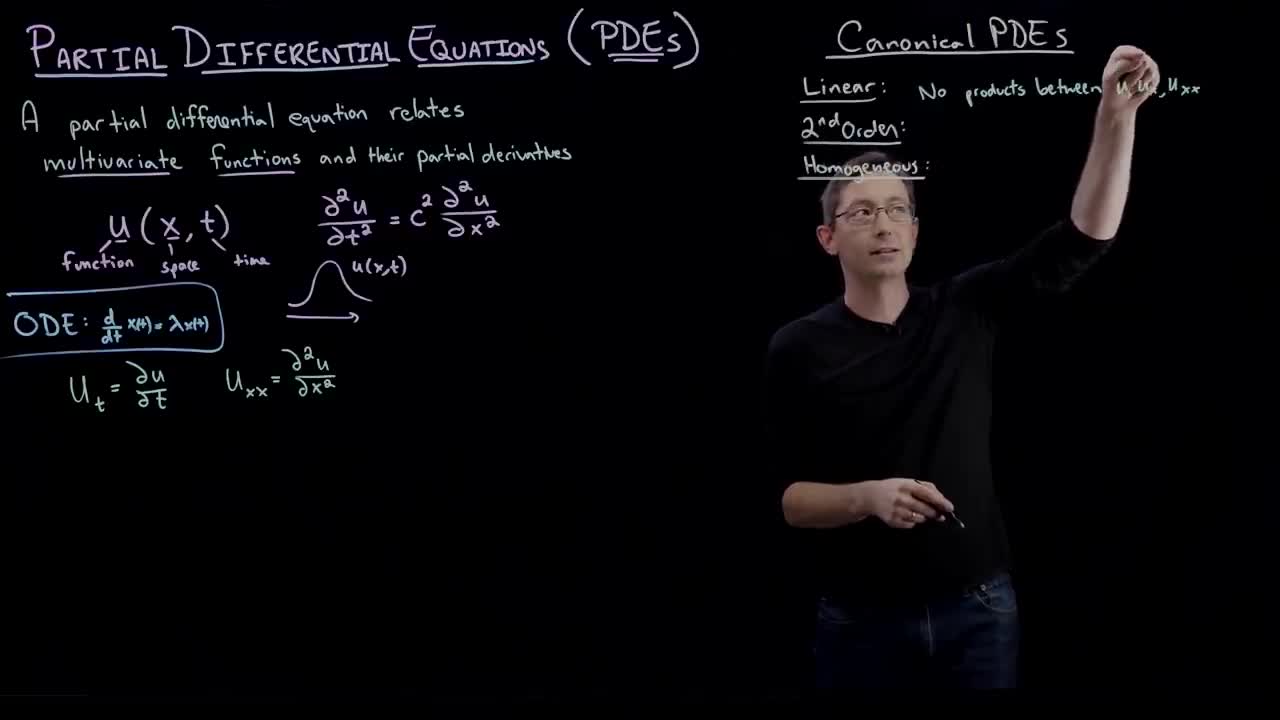 PARTIAL DIFFERENTIAL EQUATIONS (PDEs)
A partial differential equation relates
multivariate functions and their partial derivatives
u(x,t)
function space time
∂²u/∂t² = c² ∂²u/∂x²
u(x,t)
ODE: d/dt x(t) = λx(t)
u_t = ∂u/∂t u_xx = ∂²u/∂x²
Canonical PDEs
Linear: No products between u, u_x, u_xx
2nd Order:
Homogeneous: